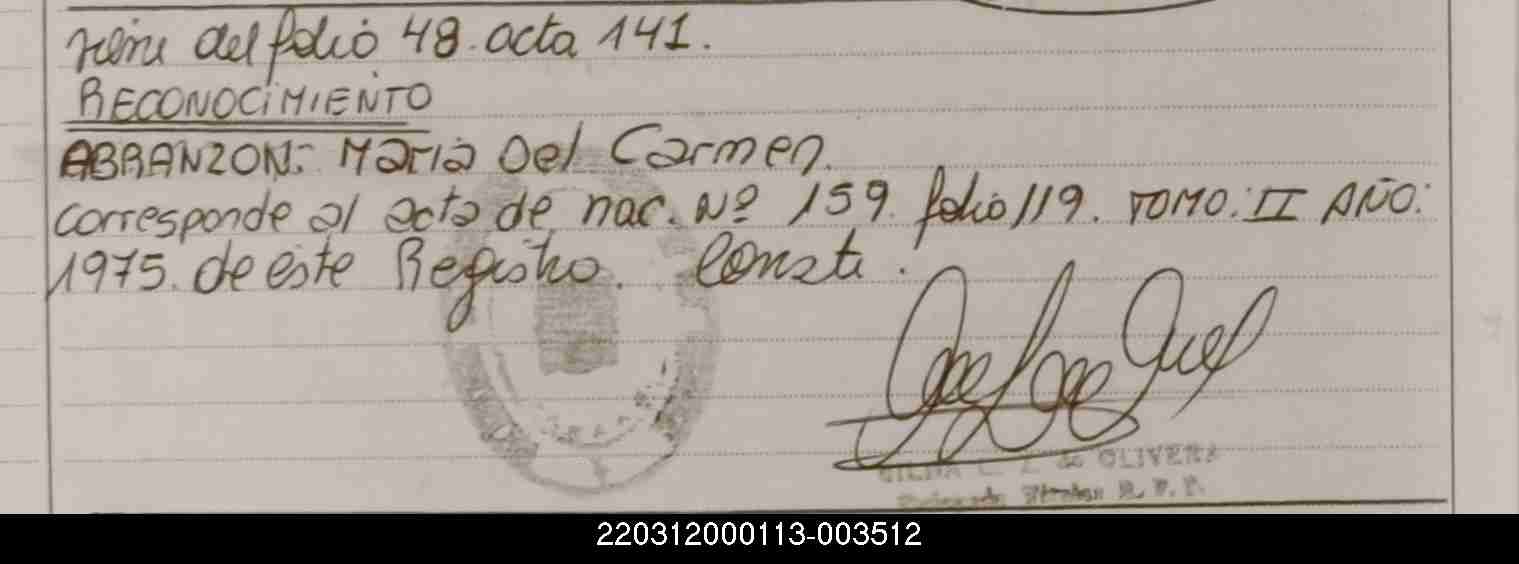 viene del folio 48. acta 141.
RECONOCIMIENTO
ABRANZON: Maria Del Carmen.
corresponde al acta de nac. Nº 159. folio 119. TOMO: II AÑO:
1975. de este Registro. Conste.
de OLIVERA
220312000113-003512